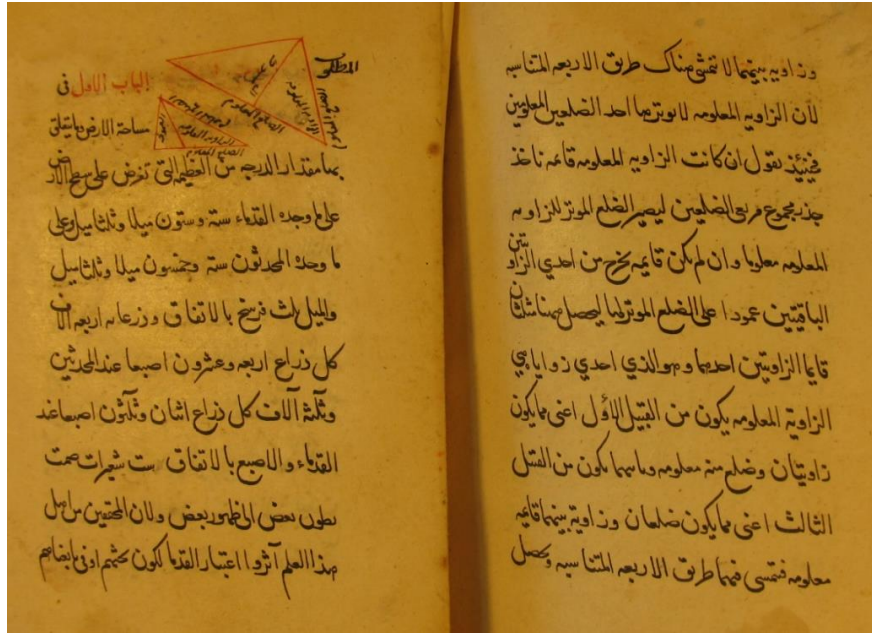 وزاويه بينهما لا تتمشى هناك طرق الاربعه المتناسبه
لان الزاويه المعلومه لا يوترها احد الضلعين المعلومين
فحينئذ نقول ان كانت الزاويه المعلومه قائمه ناخذ
جذر مجموع مربعى الضلعين ليصير الضلع الموتر للزاويه
المعلومه معلوما وان لم تكن قايمه يخرج من احدي الزاويتين
الباقيتين عمودا على الضلع الموتر لها ليحصل ههنا مثلثان
قايما الزاويتين احدهما وهو الذي احدي زواياه هي
الزاوية المعلومه يكون من القبيل الاول اعنى مما يكون
زاويتان وضلع منه معلومه وباسها يكون من القبيل
الثالث اعنى مما يكون ضلعان وزاوية بينهما قايمه
معلومه فتمشى فيهما طريق الاربعه المتناسبه ويحصل
المطلوب
الباب الاول فى
مساحة الارض وما يتعلق
بها مقدار الدرجه من العظيمه التى تفرض على سطح الارض
على ما وجده القدماء ستة وستون ميلا وثلثا ميل وعلى
ما وجده المحدثون ستة وخمسون ميلا وثلثا ميل
والميل ثلث فرسخ بالاتفاق وذرعانه اربعه الاف
كل ذراع اربعه وعشرون اصبعا عند المحدثين
وثلثة آلاف كل ذراع اثنان وثلثون اصبعا عند
القدماء والاصبع بالاتفاق ست شعيرات ضمت
بطون بعض الى ظهور بعض ولان المحققين من اهل
هذا العلم آثروا اعتبار القدما لكون بحثهم اوفى
العمود
الضلع المعلوم
الزاويه المعلومه
العمود
الزاويه المعلومه
الضلع المعلوم